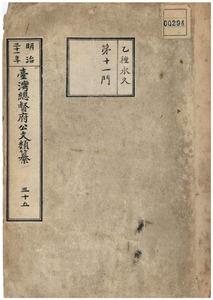 00294
乙種永久
第十一門
明治
三十一年
臺灣總督府公文類纂
三十五